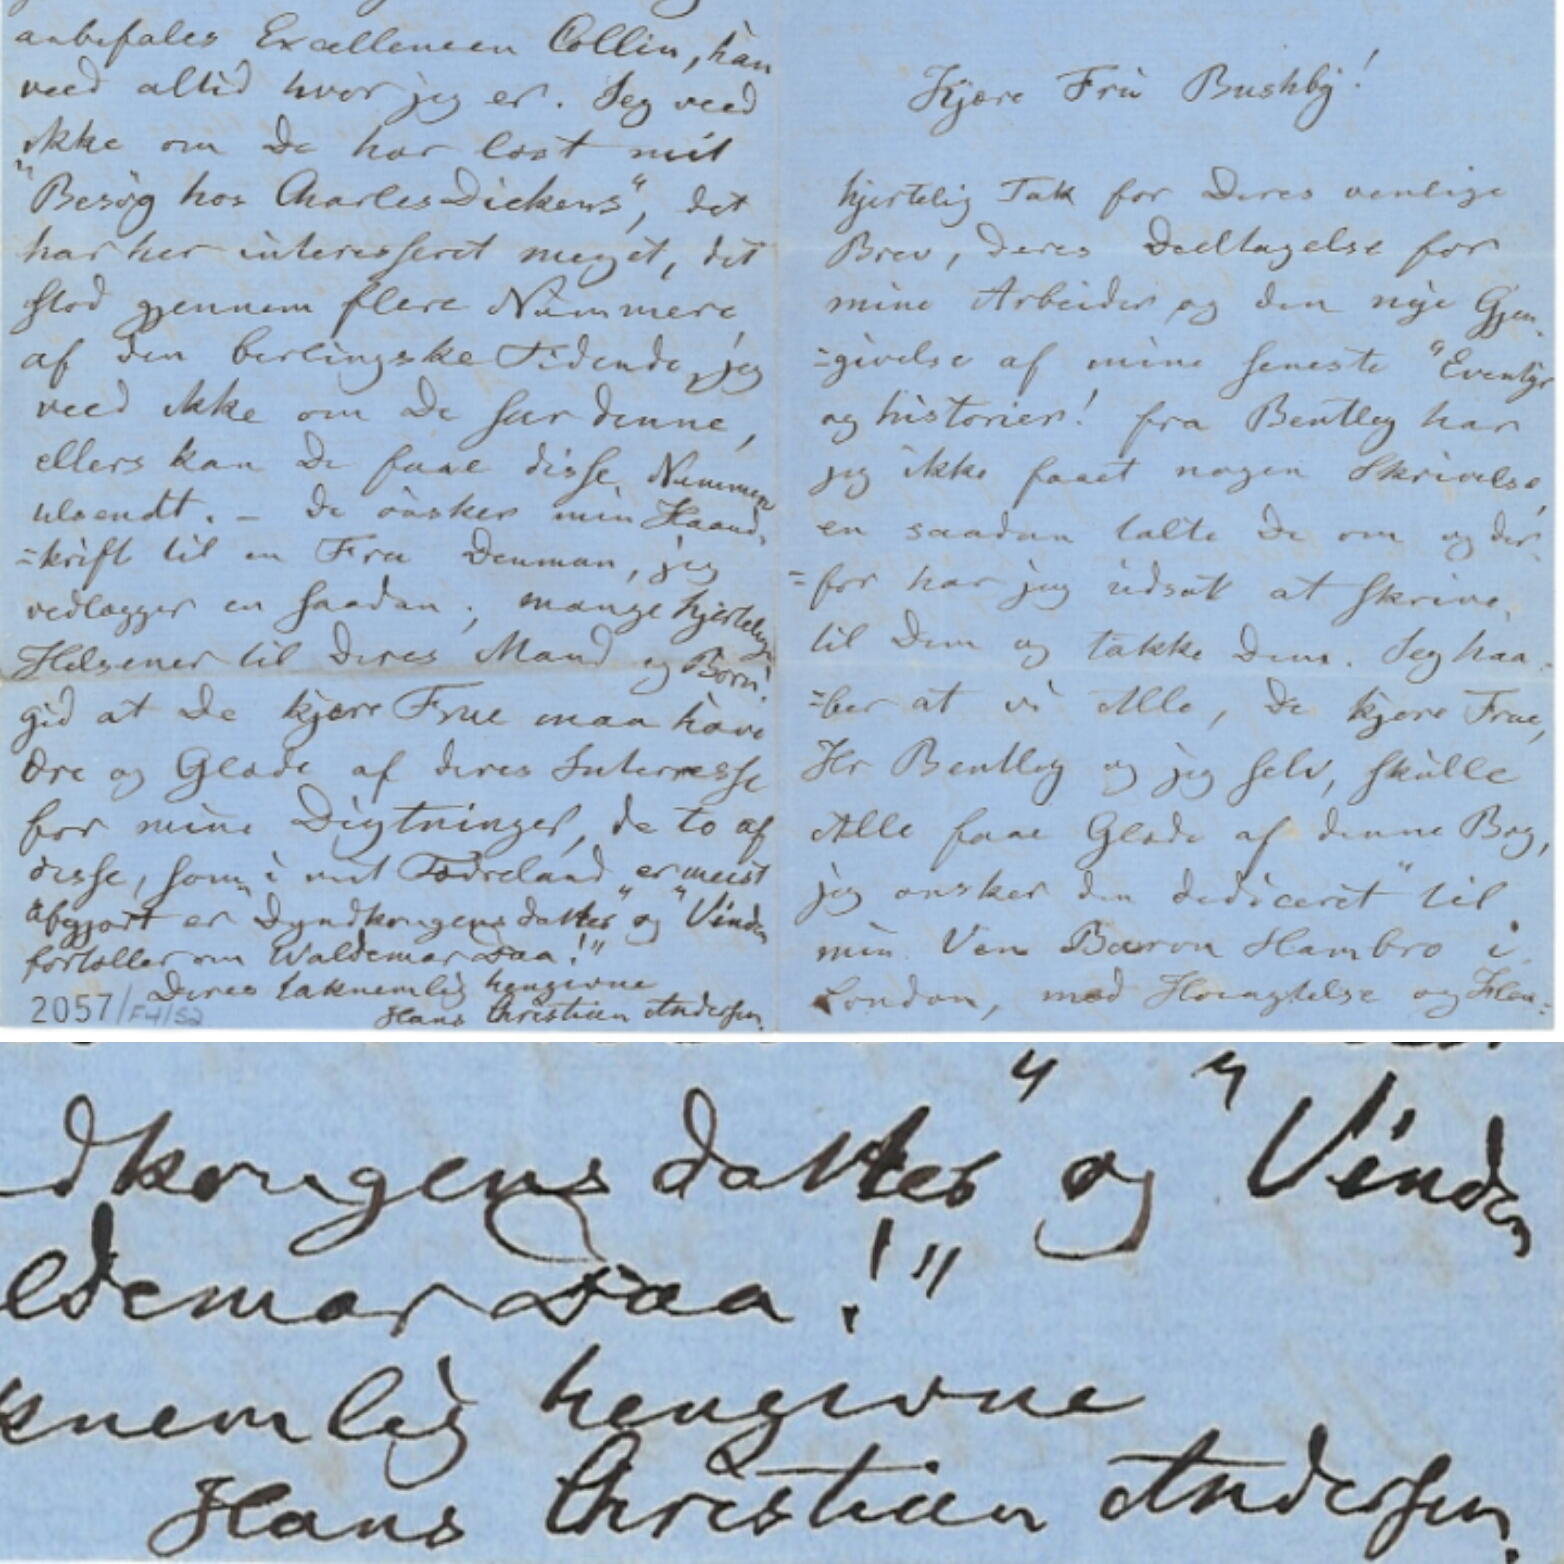 anbefales Excellencen Collin, han
veed altid hvor jeg er. Jeg veed
ikke om De har læst mit
"Besøg hos Charles Dickens", det
har her interesseret meget, det
stod gjennem flere Nummere
af den berlingske Tidende, jeg
veed ikke om De har denne,
ellers kan De faae disse Nummere
tilsendt. – De önsker min Haand,
=skrift til en Fru Denman, jeg
vedlægger en saadan; mange hjertelige
Hilsener til Deres Mand og Börn.
gid at De kjære Frue maa have
Ære og Glæde af deres Interresse
for mine Digtninger, de to af
disse, som i mit Fædreland er meest
afgjort er "Dyndkongens datter" og "Vinden
fortæller om Waldemar Daa!"
Deres taknemlig hengivne
Hans Christian Andersen.
2057/F4/52
Kjære Fru Bushby!
hjertelig Tak for Deres venlige
Brev, Deres Deeltagelse for
mine Arbeider og den nye Gjen-
=givelse af mine seneste "Eventyr
og historier! fra Bentley har
jeg ikke faaet nogen Skrivelse,
en saadan talte De om og der-
=for har jeg udsat at skrive
til Dem og takke Dem. Jeg haa-
=ber at vi Alle, De kjære Frue,
Hr Bentley og jeg selv, skulle
Alle faae Glæde af denne Bog,
jeg ønsker den dediceret" til
min Ven Baron Hambro i
London, med Høiagtelse og Hen-
dkongens datter" og "Vinden
ldemar Daa!"
knemlig hengivne
Hans Christian Andersen.